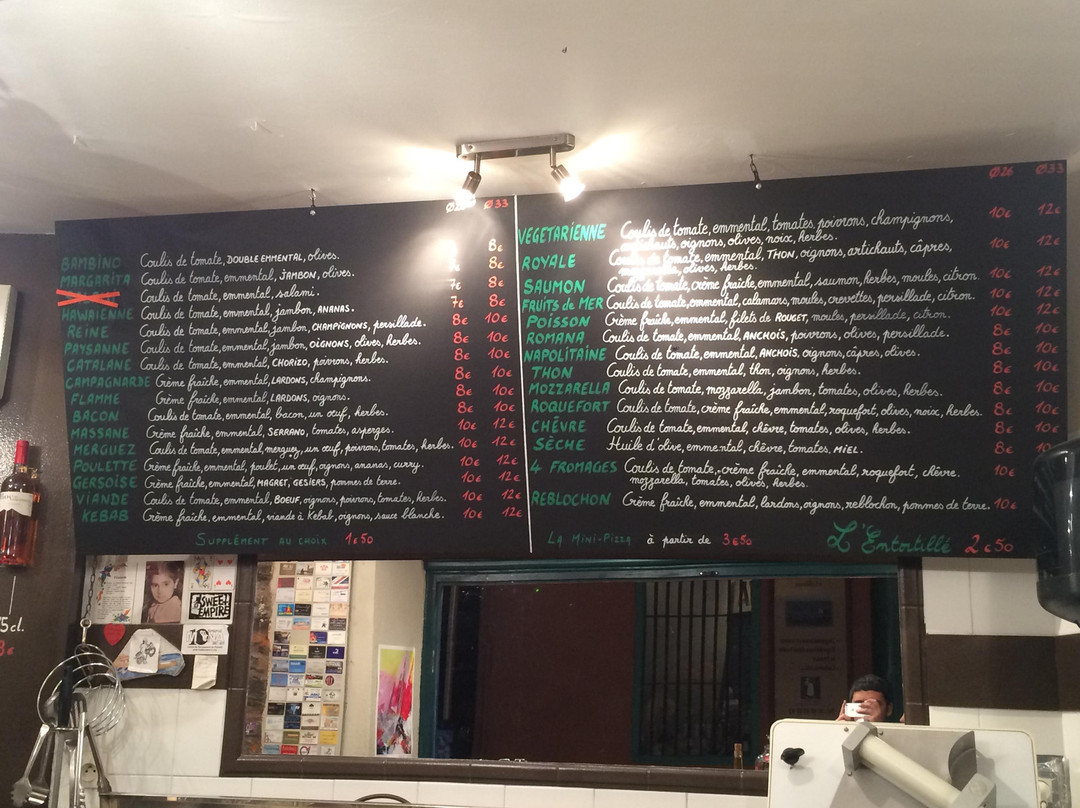 Ø33
8€
BAMBINO Coulis de tomate, DOUBLE EMMENTAL, olives. 8€
MARGARITA Coulis de tomate, emmental, JAMBON, olives. 8€
Coulis de tomate, emmental, salami. 7€ 8€
HAWAIENNE Coulis de tomate, emmental, jambon, ANANAS. 8€ 10€
REINE Coulis de tomate, emmental, jambon, CHAMPIGNONS, persillade. 8€ 10€
PAYSANNE Coulis de tomate, emmental, jambon, OIGNONS, olives, herbes. 8€ 10€
CATALANE Coulis de tomate, emmental, CHORIZO, poivrons, herbes. 8€ 10€
CAMPAGNARDE Crème fraîche, emmental, LARDONS, champignons. 8€ 10€
FLAMME Crème fraîche, emmental, LARDONS, oignons. 8€ 10€
BACON Coulis de tomate, emmental, bacon, un œuf, herbes. 8€ 10€
MASSANE Crème fraîche, emmental, SERRANO, tomates, asperges. 10€ 12€
MERGUEZ Coulis de tomate, emmental, merguez, un œuf, poivrons, tomates, herbes. 10€ 12€
POULETTE Crème fraîche, emmental, poulet, un œuf, oignons, ananas, curry. 10€ 12€
GERSOISE Crème fraîche, emmental, MAGRET, GESIERS, pommes de terre. 10€ 12€
VIANDE Coulis de tomate, emmental, BOEUF, oignons, poivrons, tomates, herbes. 10€ 12€
KEBAB Crème fraîche, emmental, viande à Kebab, oignons, sauce blanche. 10€ 12€
SUPPLÉMENT AU CHOIX 1€50
Ø26 Ø33
VEGETARIENNE Coulis de tomate, emmental, tomates, poivrons, champignons, 10€ 12€
artichauts, oignons, olives, noix, herbes.
ROYALE Coulis de tomate, emmental, THON, oignons, artichauts, câpres, 10€ 12€
olives, herbes.
SAUMON Coulis de tomate, crème fraîche, emmental, saumon, herbes, moules, citron. 10€ 12€
FRUITS de MER Coulis de tomate, emmental, calamars, moules, crevettes, persillade, citron. 10€ 12€
POISSON Crème fraîche, emmental, filets de ROUGET, moules, persillade, citron. 10€ 12€
ROMANA Coulis de tomate, emmental, ANCHOIS, poivrons, olives, persillade. 8€ 10€
NAPOLITAINE Coulis de tomate, emmental, ANCHOIS, oignons, câpres, olives. 8€ 10€
THON Coulis de tomate, emmental, thon, oignons, herbes. 8€ 10€
MOZZARELLA Coulis de tomate, mozzarella, jambon, tomates, olives, herbes. 8€ 10€
ROQUEFORT Coulis de tomate, crème fraîche, emmental, roquefort, olives, noix, herbes. 8€ 10€
CHÈVRE Coulis de tomate, emmental, chèvre, tomates, olives, herbes. 8€ 10€
SÈCHE Huile d'olive, emmental, chèvre, tomates, MIEL. 8€
4 FROMAGES Coulis de tomate, crème fraîche, emmental, roquefort, chèvre. 10€
mozzarella, tomates, olives, herbes.
REBLOCHON Crème fraîche, emmental, lardons, oignons, reblochon, pommes de terre. 10€
LA MINI-PIZZA à partir de 3€50
L'Entortillé 2€50
SWEET
EMPIRE
5cl.